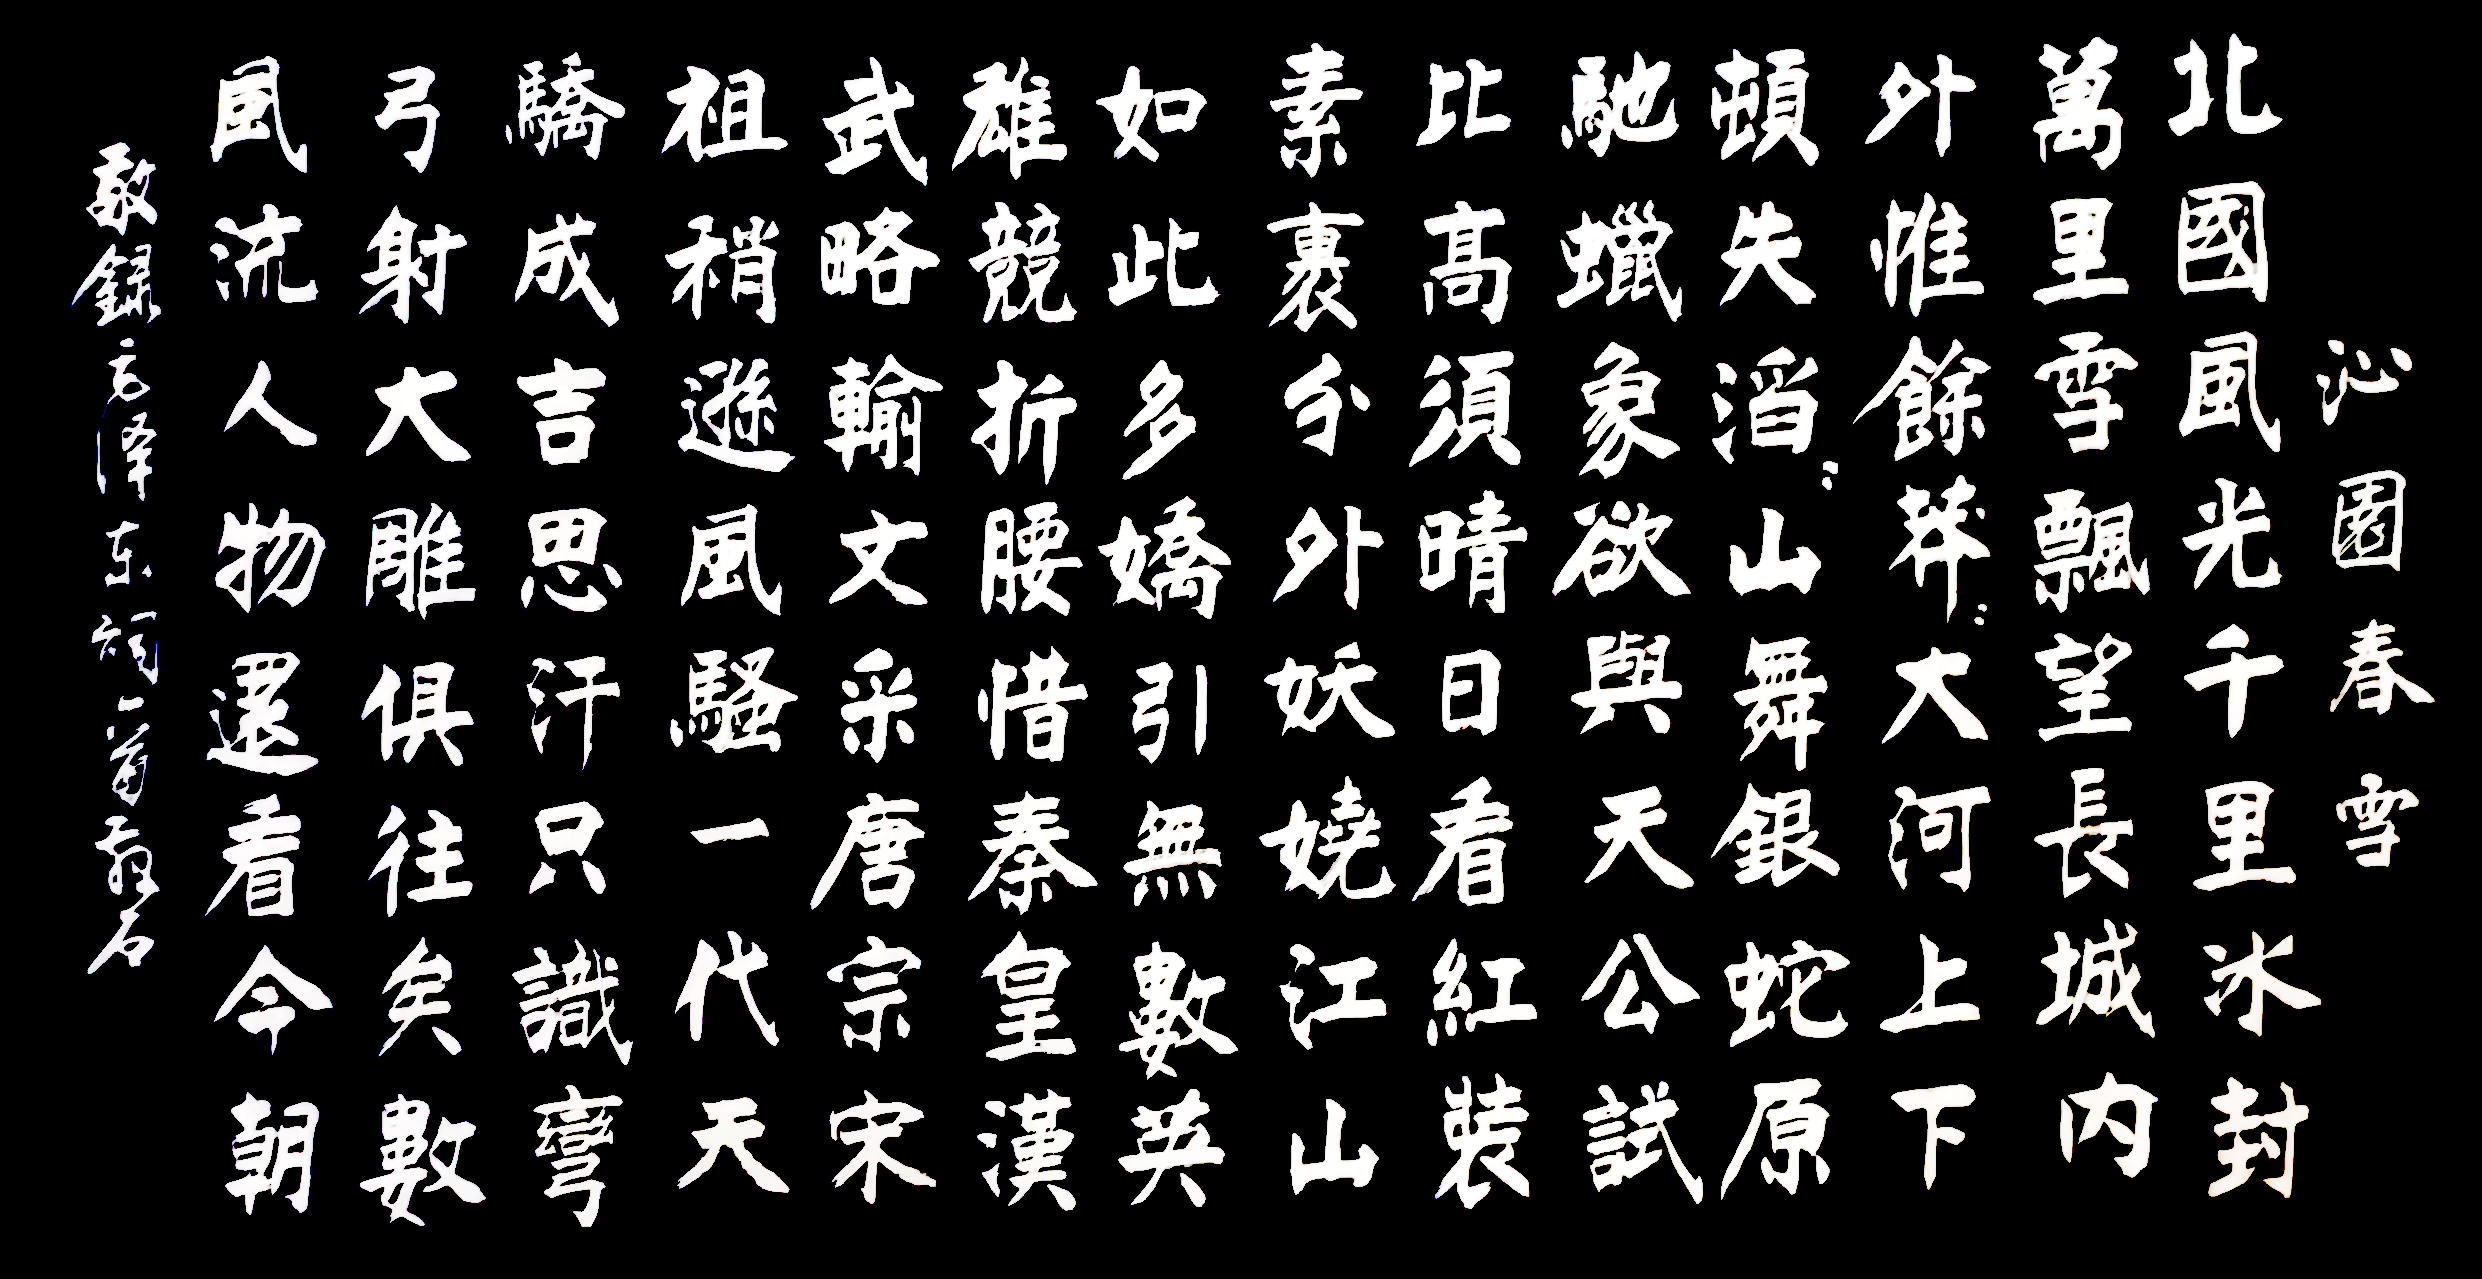 沁園春雪
北國風光千里冰封
萬里雪飄望長城内
外惟餘莽〻大河上下
頓失滔〻山舞銀蛇原
馳蠟象欲與天公試
比高須晴日看紅裝
素裹分外妖嬈江山
如此多嬌引無數英
雄競折腰惜秦皇漢
武略輸文采唐宗宋
祖稍遜風騷一代天
驕成吉思汗只識彎
弓射大雕俱往矣數
風流人物還看今朝
敬録毛泽东詞一首石